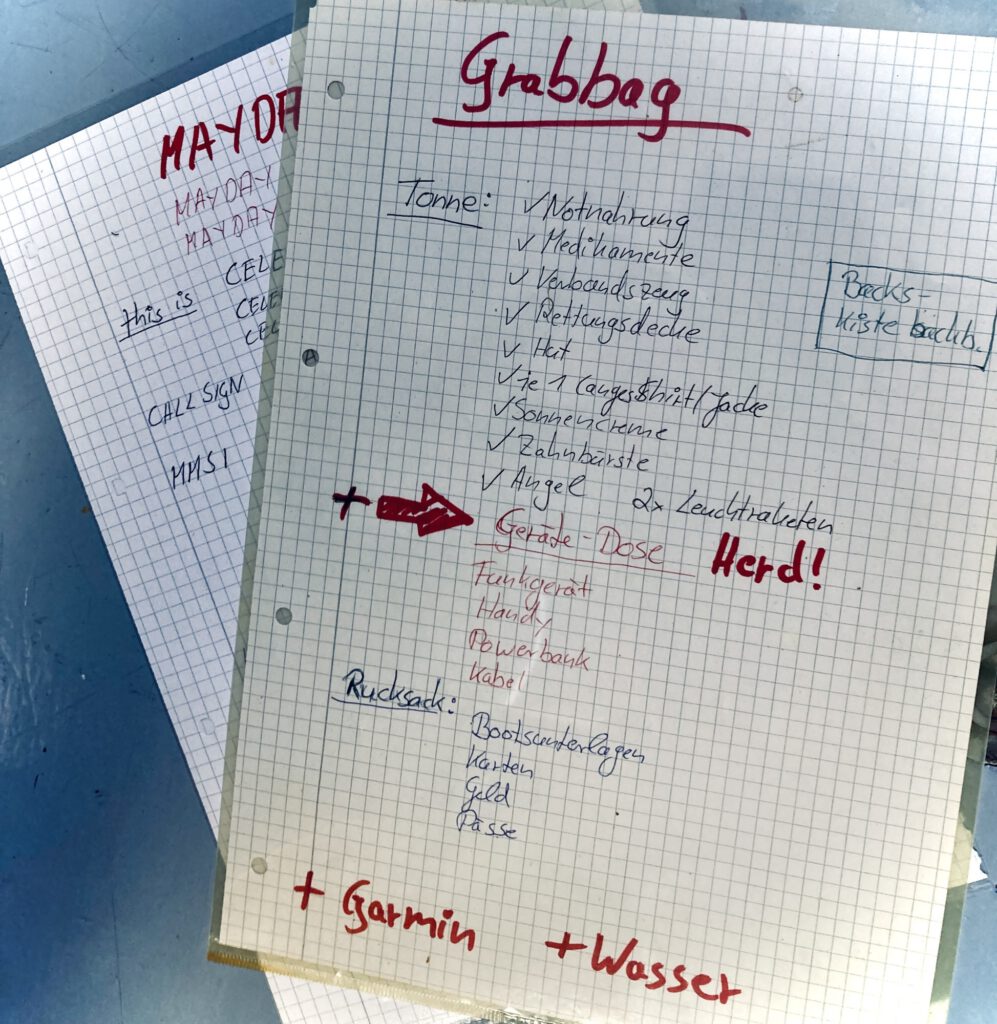 Grabbag
Tonne: ✓ Notnahrung
✓ Medikamente
✓ Verbandszeug
✓ Rettungsdecke
✓ Hut
✓ je 1 langes Shirt/Jacke
✓ Sonnencreme
✓ Zahnbürste
✓ Angel 2x Leuchtraketen
Backs-
kiste backb.
+ Geräte-Dose Herd!
Funkgerät
Handy
Powerbank
Kabel
Rucksack:
Bootsunterlagen
Karten
Geld
Pässe
+ Garmin + Wasser
MAYDA
MAYDAY
MAYDAY
this is CELE
CELE
CEL
CALL SIGN
MMSI